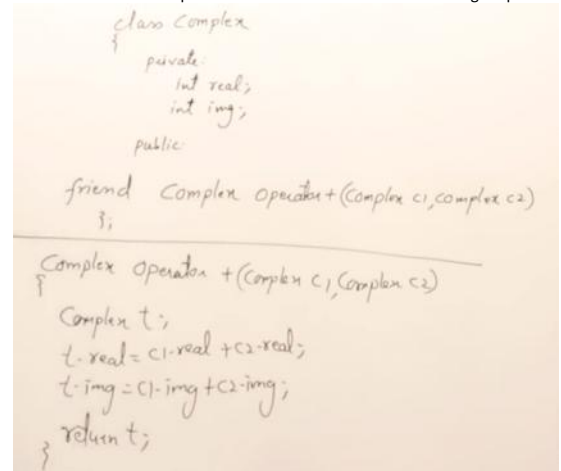 class Complex
{
private:
int real;
int img;
public:
friend Complex operator+(Complex c1, complex c2)
};
Complex operator +(Complex c1, Complex c2)
{
Complex t;
t.real = c1.real + c2.real;
t.img = c1.img + c2.img;
return t;
}